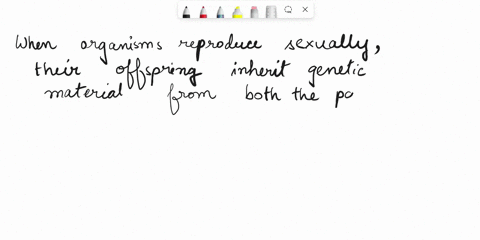 When organisms reproduce sexually,
their offspring inherit genetic
material from both the pa